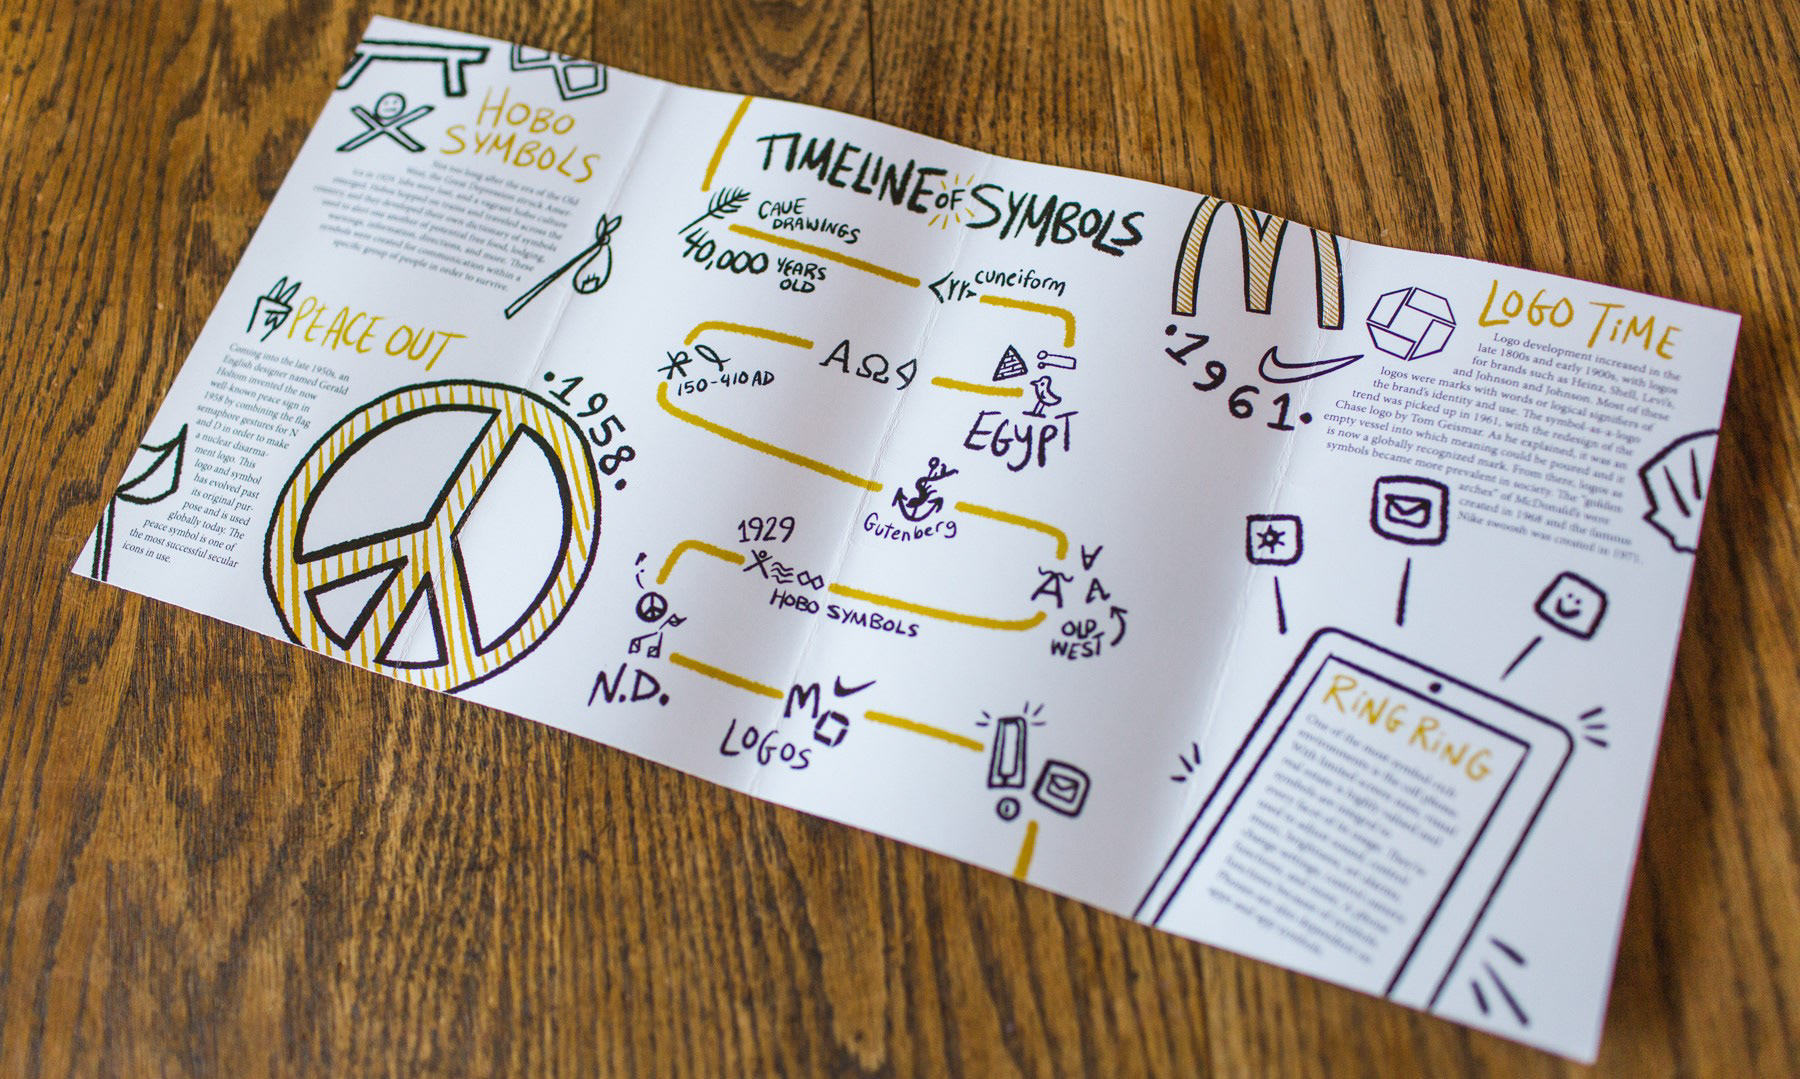 HOBO
SYMBOLS
Not too long after the era of the Old
West, the Great Depression struck Amer-
ica in 1929. Jobs were lost, and a vagrant hobo culture
emerged. Hobos hopped on trains and traveled across the
country, and they developed their own dictionary of symbols
used to alert one another of potential free food, lodging,
warnings, information, directions, and more. These
symbols were created for communication within a
specific group of people in order to survive.
PEACE OUT
Coming into the late 1950s, an
English designer named Gerald
Holtom invented the now
well-known peace sign in
1958 by combining the flag
semaphore gestures for N
and D in order to make
a nuclear disarma-
ment logo. This
logo and symbol
has evolved past
its original pur-
pose and is used
globally today. The
peace symbol is one of
the most successful secular
icons in use.
•1958.
TIMELINE OF SYMBOLS
CAVE
DRAWINGS
40,000 YEARS
OLD
cuneiform
EGYPT
ΑΩ
150-410 AD
Gutenberg
A
A A
OLD
WEST
1929
HOBO SYMBOLS
N.D.
M
LOGOS
•1961.
LOGO TIME
Logo development increased in the
late 1800s and early 1900s, with logos
for brands such as Heinz, Shell, Levi's,
and Johnson and Johnson. Most of these
logos were marks with words or logical signifiers of
the brand's identity and use. The symbol-as-a-logo
trend was picked up in 1961, with the redesign of the
Chase logo by Tom Geismar. As he explained, it was an
empty vessel into which meaning could be poured and it
is now a globally recognized mark. From there, logos as
symbols became more prevalent in society. The "golden
arches" of McDonald's were
created in 1968 and the famous
Nike swoosh was created in 1971.
RING RING
One of the most symbol-rich
environments is the cell phone.
With limited screen area, visual
real estate is highly valued and
symbols are integral to
every facet of its usage. They're
used to adjust sound, control
music, brightness, set alarms,
change settings, control camera
functions, and more.